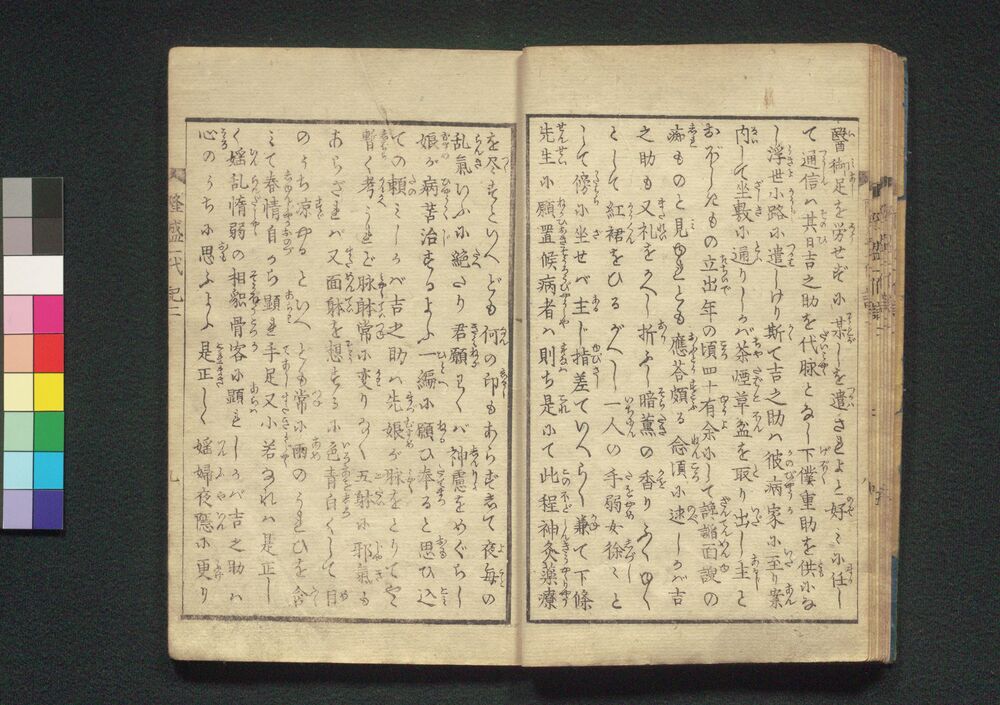 醫御足を労せずに某しを遣されよと好ミに任し
て通信ハ其日吉之助を代脉となし下僕重助を供にな
し浮世小路に遣しけり斯て吉之助ハ彼病家に至り案
内して坐敷に通りしが茶煙草盆を取り出し主と
おぼしきもの立出年の頃四十有余にして諂諛面諛の
もの見ゆれども應答頗る念頃に述しかば吉
之助も又礼をかへし折ふし暗薫の香りふくゆく
として紅裙をひるがへし一人の手弱女徐々と
して傍に坐せバ主ト指差ていへらく兼て下條
先生に願置候病者ハ則ち是にて此程神灸薬療
を尽すといへども何の印もあらずして夜毎の
乱氣いふに絶たり君願わくバ神慮をめぐらし
娘が病苦治するよふ一編に願ひ奉ると思ひ込
ての頼ミしかバ吉之助ハ先娘が脉をとりてやゝ
暫く考うれど脉躰常に変りなく五躰に邪氣も
あらざれバ又面躰を想するに色青白くして目
のうち凉やかなるといへども常に雨のうれひを含
ミて春情自から顕れ手足又小若なれハ是正し
く婬乱惰弱の相貌骨容に顕れしかバ吉之助ハ
心のうちに思ふよふ是正しく婬婦夜隠に更り
隆盛一代記二
九